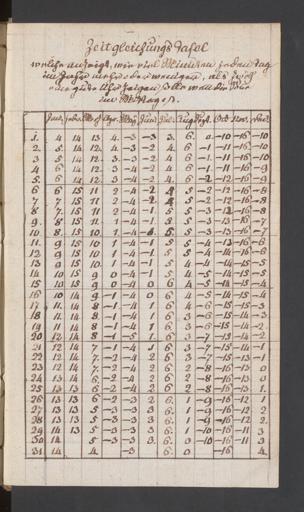 Zeitgleichungs Tafel
welche anzeigt, wie viel Minuten jeden Tag
im Jahr mehr oder weniger, als
eine gute Uhr zeigen soll wann die Sonne
im Mittag ist.
Jan. Febr. Merz Apr. May Jun. Jul. Aug. Sept. Oct. Nov. Dec.
1. 4 14 13 4 -3 -3 3. 6. 0 -10 -16 -10
2. 5 14 12. 3. -3 -2 4 6 -1 -11 -16 -10
3. 5 14 12. 3 -3 -2 4 6 -1 -11 -16 -10
4. 6 14 12. 3 -4 -2 4 6 -1 -11 -16 -9
5. 6 14 12. 3 -4 -2 4 6 -2 -12 -16 -9
6 6 15 11 2 -4 -2 5 -2 -12 -16 -8
7 7 15 11 2 -4 5 -2 -12 -16 -8
8. 7. 15 11 2 -4 -1 5 5 -3 -16 -8
9. 8 15 11 1 -4 -1 5 5 -3 -13 -16 -7
10. 8 15 10. 1 -4 5 5 -3 -13 -16 -7
11. 9 15 10 1 -4 -1 5 5 -4 -13 -16 -6
12 9 15 10 1 -4 -1 5 5 -4 -14 -16 -6
13 9 15 10. 1 -4 -1 5 4 -4 -14 -16 -5
14 10 15 9 0 -4 -1 5 4 -5 -14 -15 -5
15 10 15 9 0 -4 0 6 4 -5 -14 -15 -4
16 10 14 9 -1 -4 0 6 4 -5 -14 -15 -4
17 14 8 -1 -4 1 6 4 -6 -15 -15 -3
18 11 14. 8 -1 -4 1 6 3 -6 -15 -14 -3
19 11 14 8 -1 -4 1 6 3 -6 -15 -14 -2.
20 12 14 8 -1 6 3 -7 -15 -14 -2
21 12 14 7. -1 -4 6 3 -7 -15 -14 -1
22 12 14 7. -2 -4 2 6 3 -7 -15 -13 -1
23 12 14 7. -2 -4 2 6 2 -8 -16 -13 0
24 13 14 6. -2 -4 2 6 2 -8 -16 -13 0
25 13 13 6 -2 -4 2 6 2 -8 -16 -13 1.
26 13 13 6 -2 -3 2 6. 1 -9 -16 -12 1
27 13 13 5 -3 -3 3 6. 1 -9 -16 -12 2
28 13 13 5 -3 -3 3 6. 1 -9 -16 -12 2.
29 14 13 5 -3 -3 3 6. 1 -10 -16 -11 3
30 14 5 -3 -3 3. 6. 0 -10 -16 -11 3
31 14 4. -3 6. 0 -16 4.